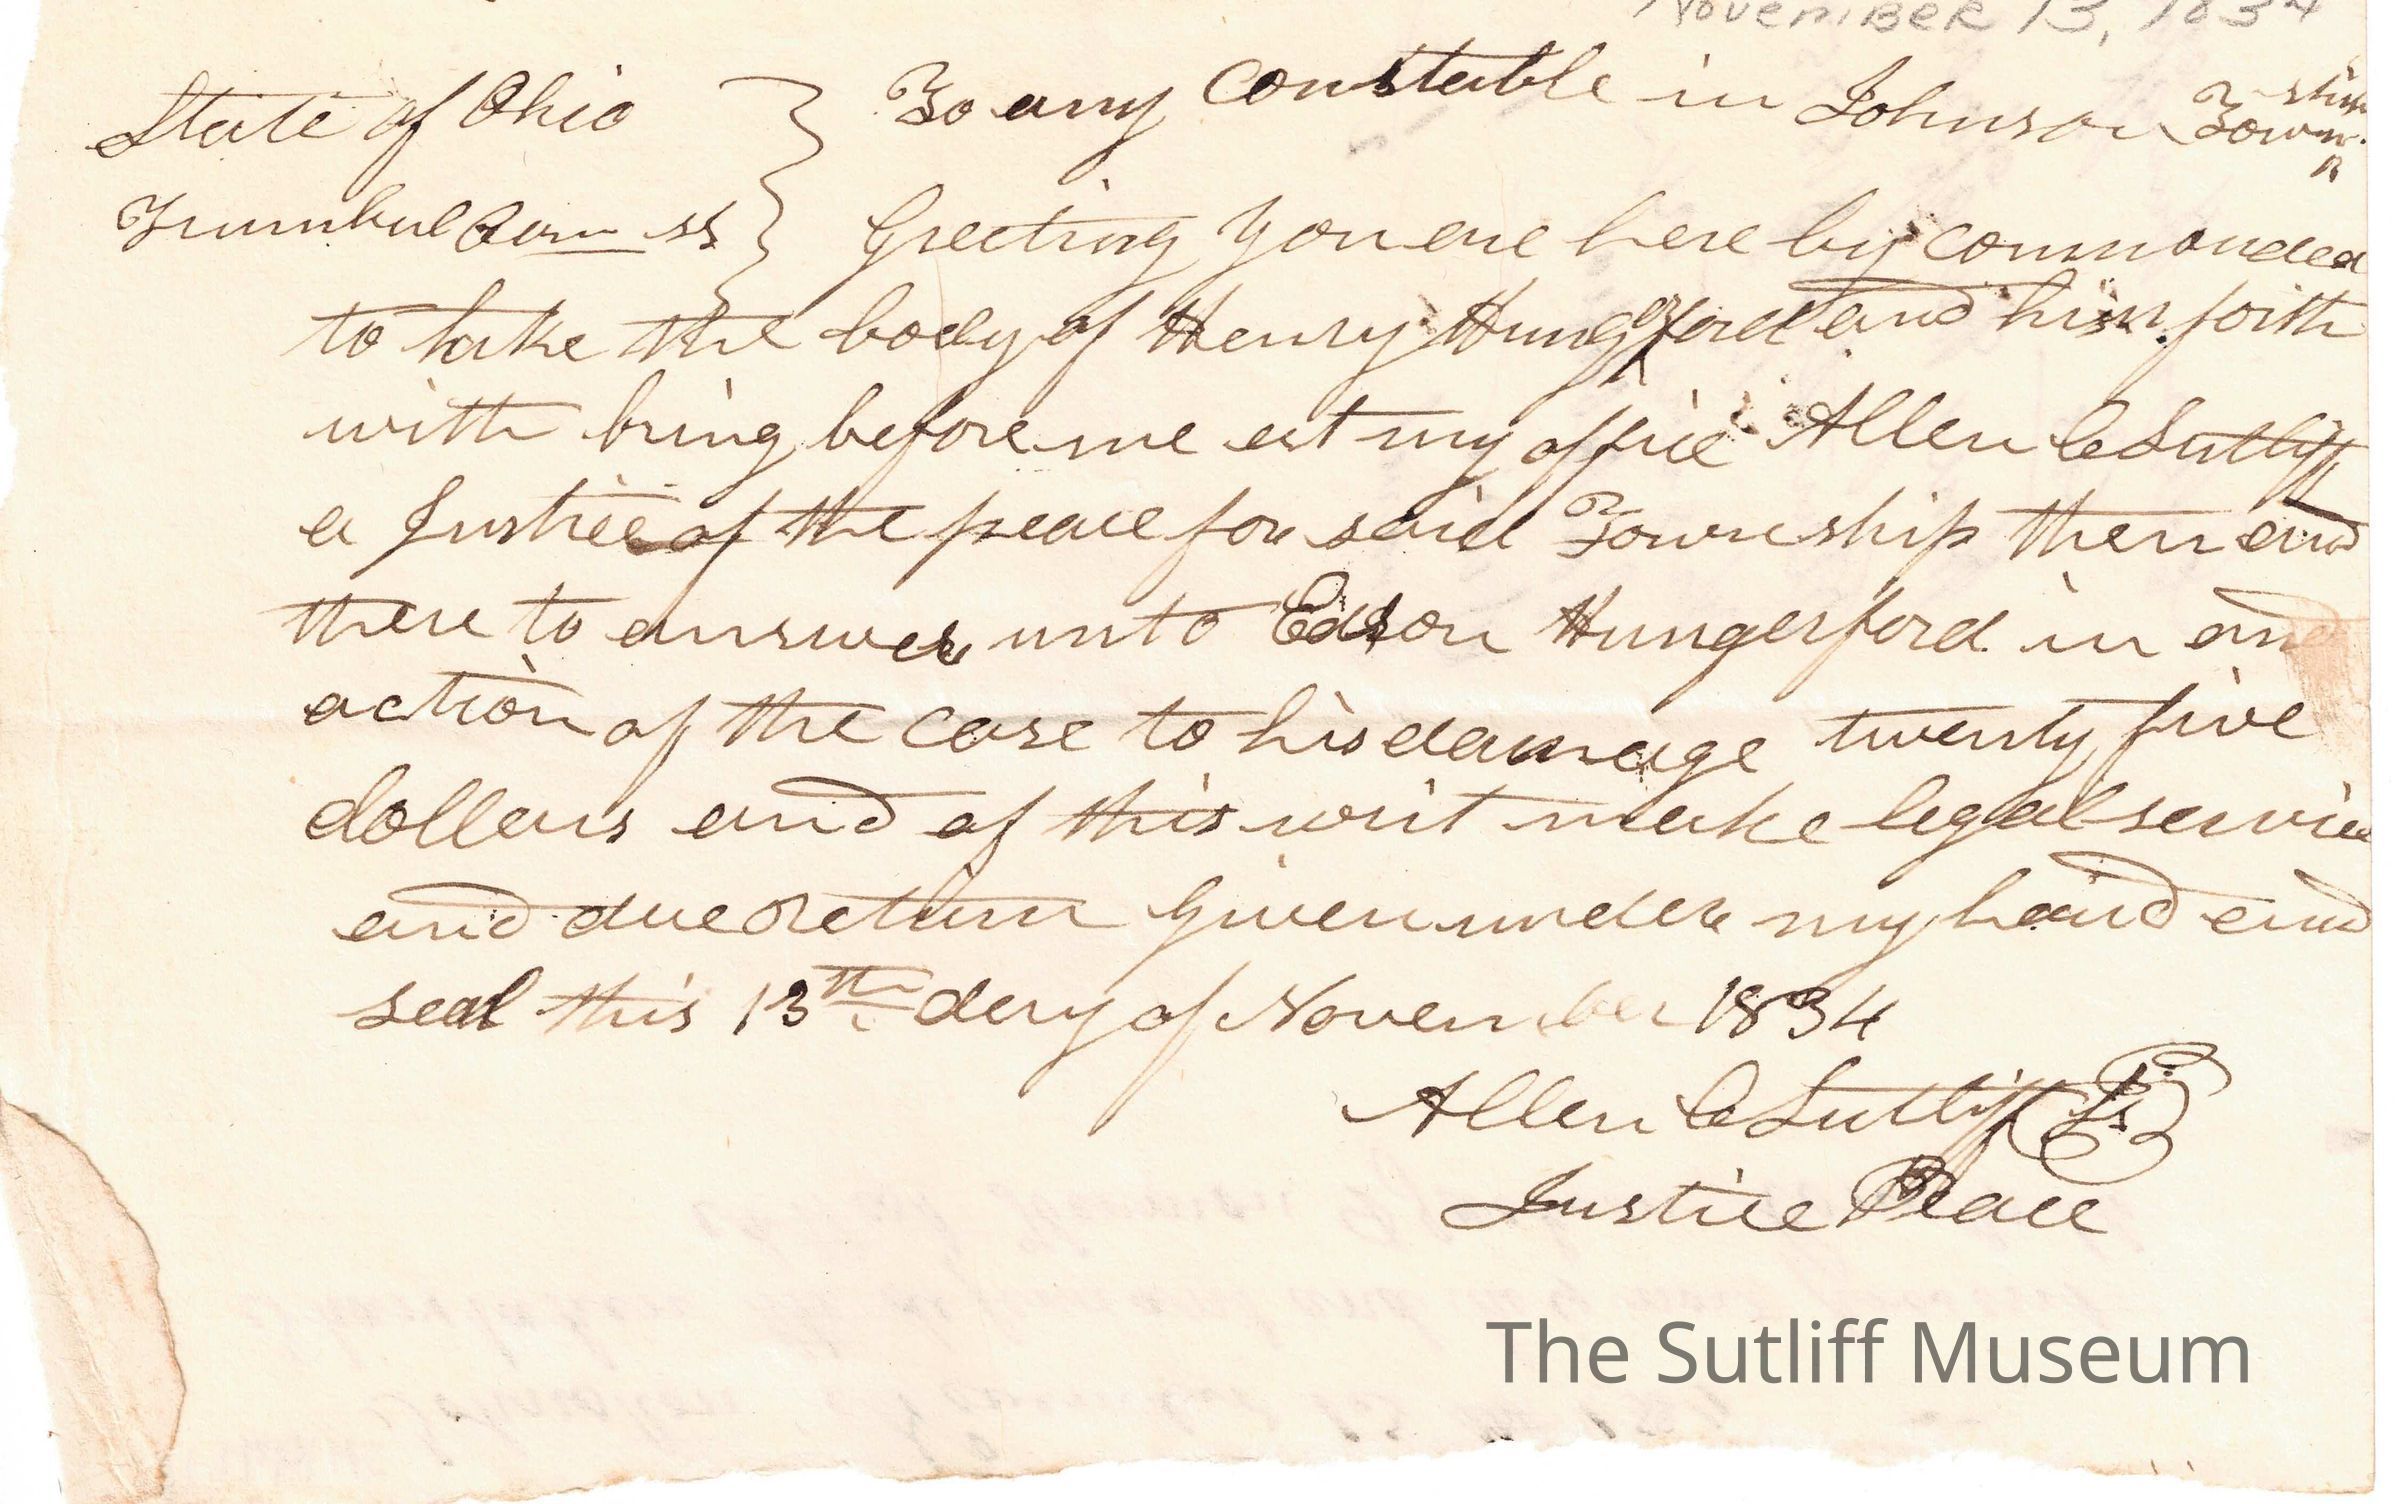 November 13, 1834
State of Ohio } To any Constable in Johnson Township
Trumbul Com ss } Greeting You are here by commanded
to take the body of Henry Hungerford and him forth
with bring before me at my office Allen C Sutliff
a Justice of the peace for said Township then and
there to answer unto Edson Hungerford in and
action of the case to his damage twenty five
dollars and of this writ make legal service
and due return Given under my hand and
seal this 13th day of November 1834
Allen C Sutliff Ls
Justice Peace
The Sutliff Museum